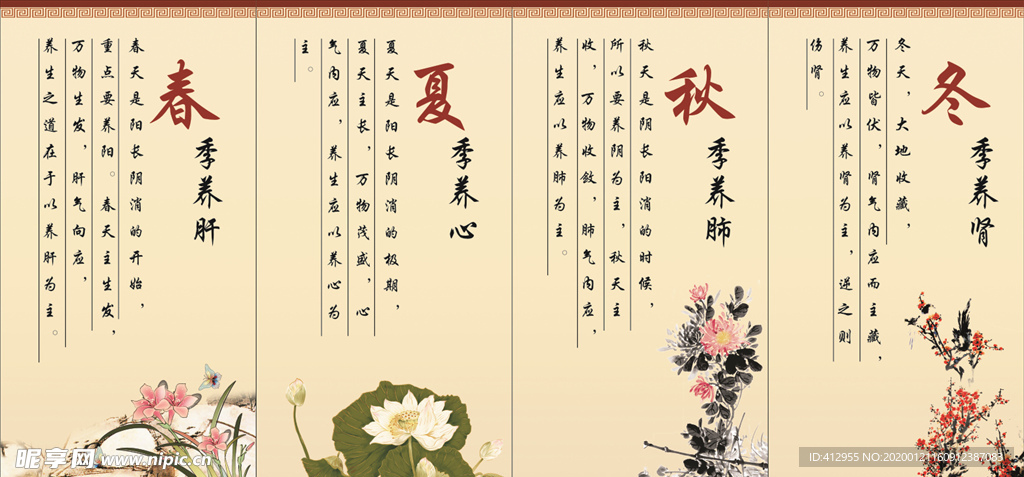 春
季养肝
春天是阳长阴消的开始，
重点要养阳。春天主生发，
万物生发，肝气向应，
养生之道在于以养肝为主。
夏
季养心
夏天是阳长阴消的极期，
夏天主长，万物茂盛，心
气内应，养生应以养心为
主。
秋
季养肺
秋天是阴长阳消的时候，
所以要养阴为主，秋天主
收，万物收敛，肺气内应，
养生应以养肺为主。
冬
季养肾
冬天，大地收藏，
万物皆伏，肾气内应而主藏，
养生应以养肾为主，逆之则
伤肾。
昵享网 www.nipic.cn
ID:412955 NO:20200121160912387083